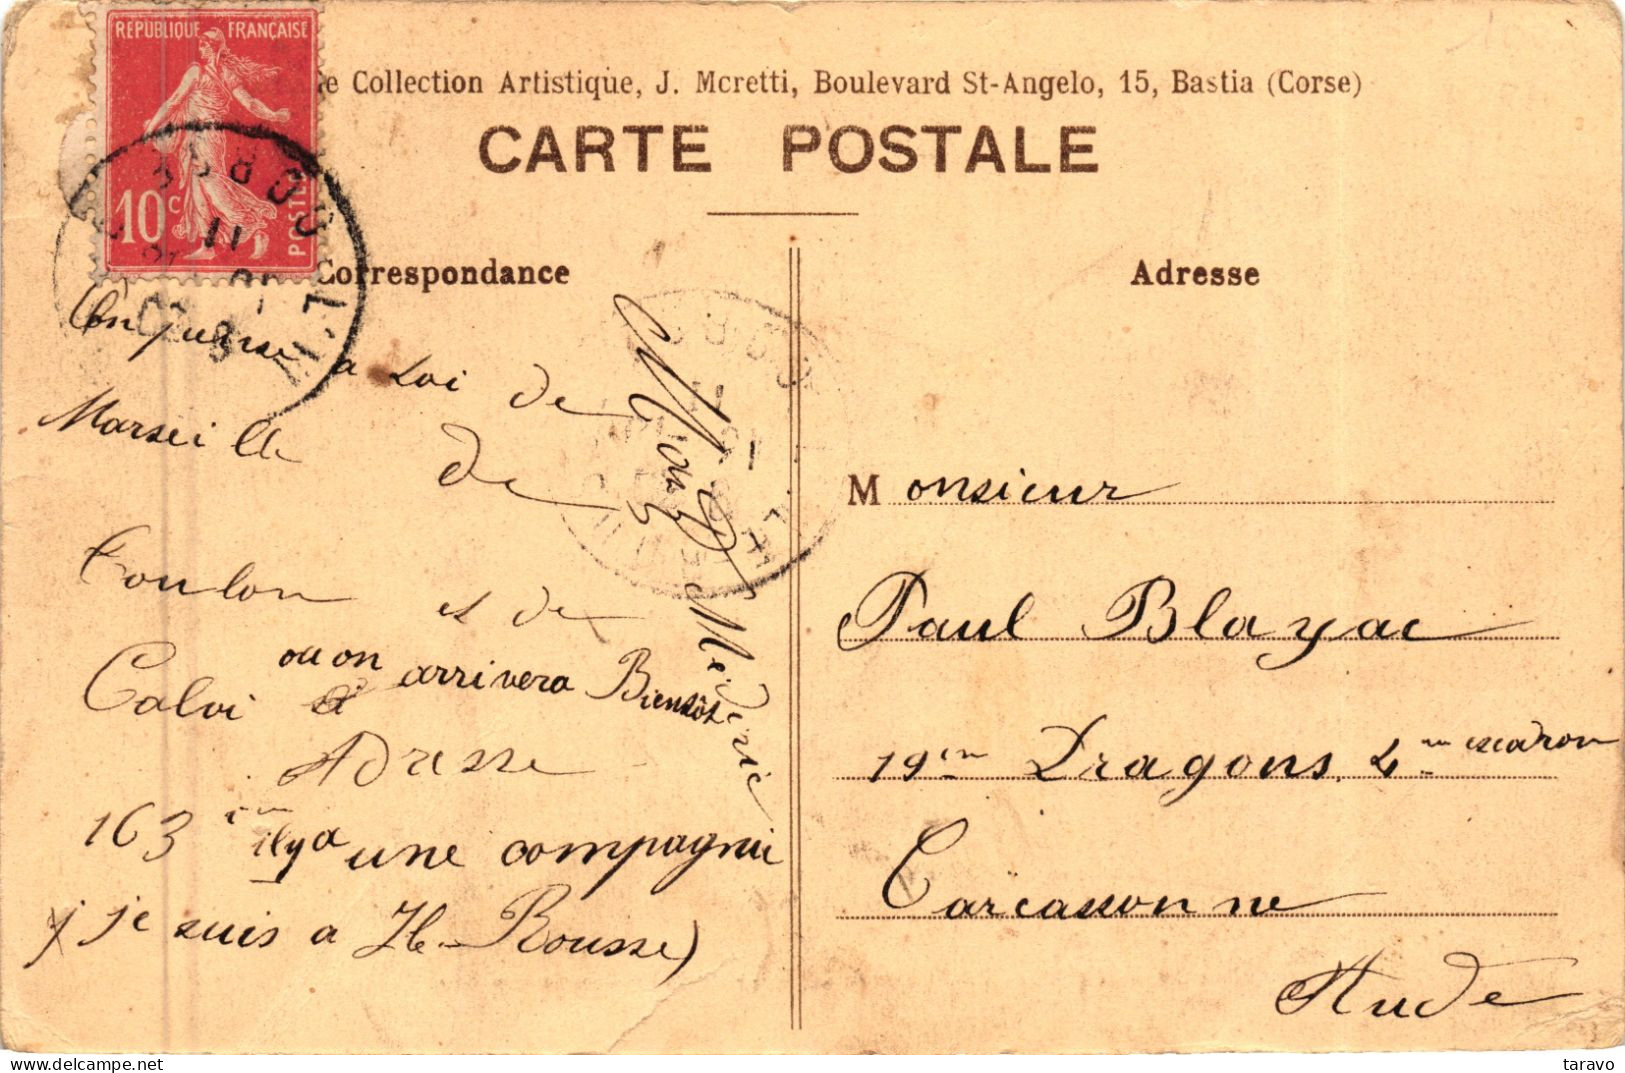 RÉPUBLIQUE FRANÇAISE
10c
POSTES
Collection Artistique, J. Moretti, Boulevard St-Angelo, 15, Bastia (Corse)
CARTE POSTALE
Correspondance
a Loi de
Marseille de
Toulon et de
Calvi ou on arrivera Bientôt
Adresse
163 ième il y a une compagnie
je suis a Ile-Rousse)
Médéric
Adresse
Monsieur
Paul Blayac
19em Dragons, 4me escadron
Carcassonne
Aude
CORSE
11
taravo